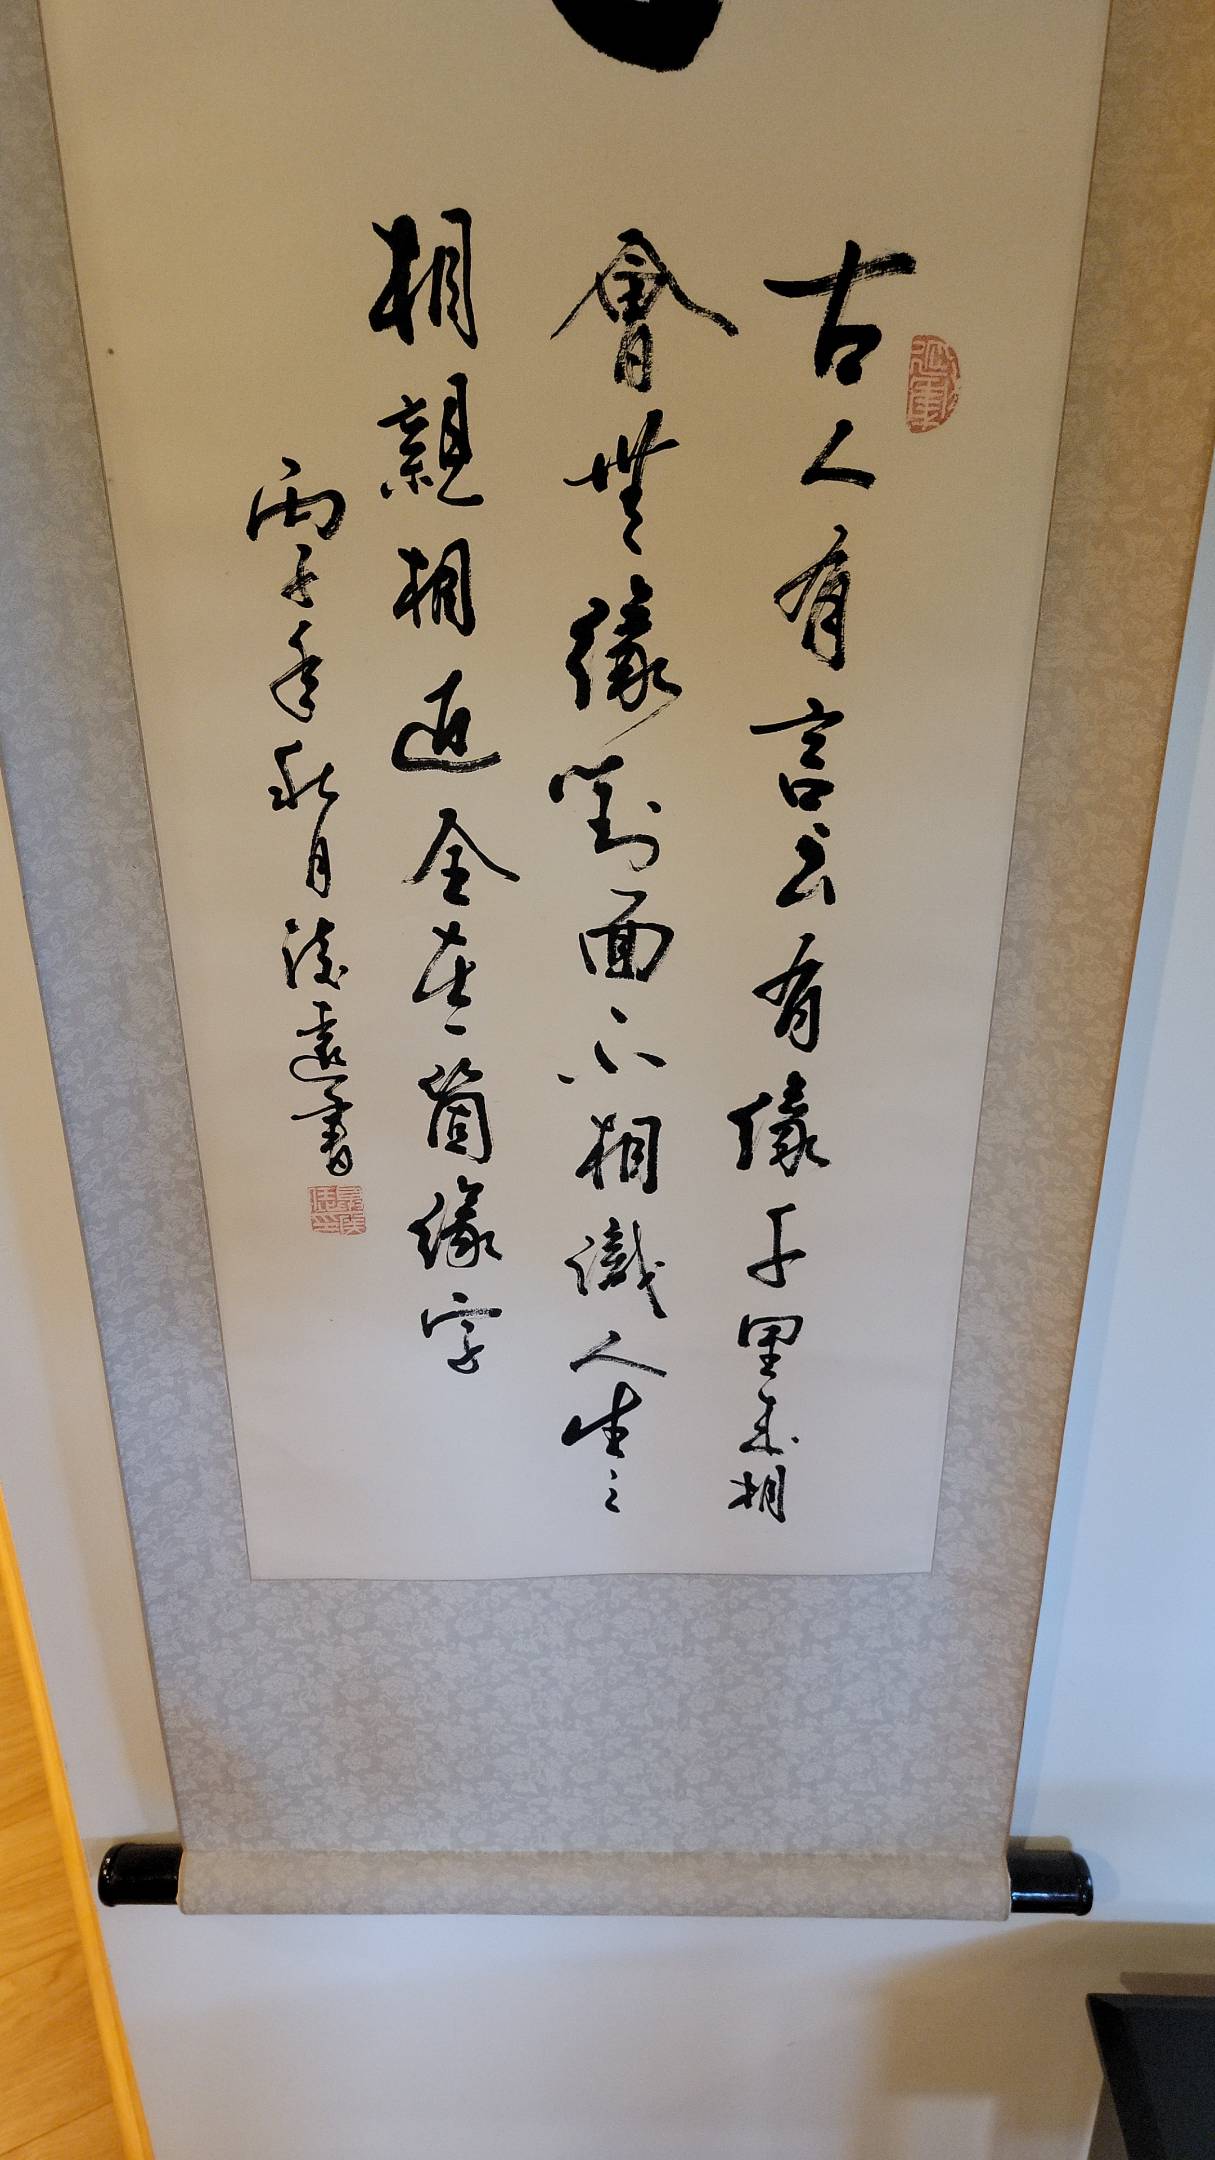 古人有言云有緣千里來相
會無緣對面不相識人生之
相親相近全在箇緣字
丙子年秋月 遠書